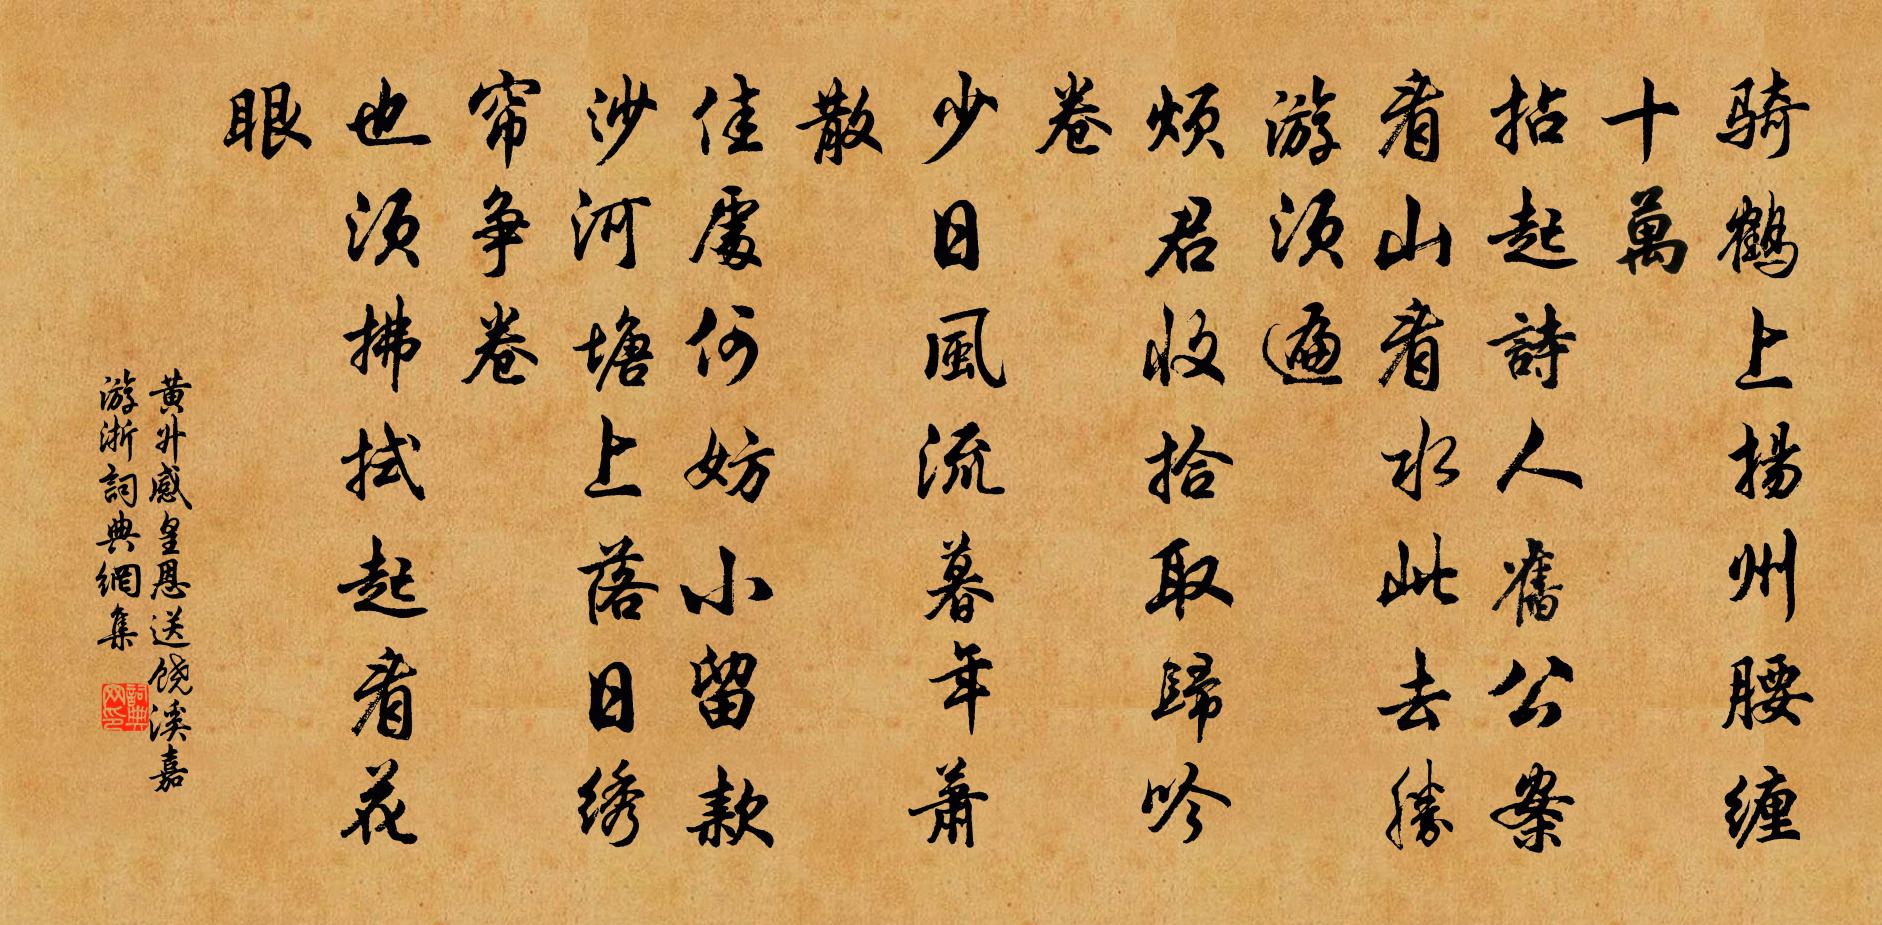 骑鹤上揚州腰缠
十萬
拈起詩人舊公案
看山看水此去勝
游须遍
烦君收拾取歸吟
卷
少日風流暮年蕭
散
佳處何妨小留款
沙河塘上落日绣
帘争卷
也须拂拭起看花
眼
黄升感皇恩送饶溪嘉
游浙詞典網集
詞典网印